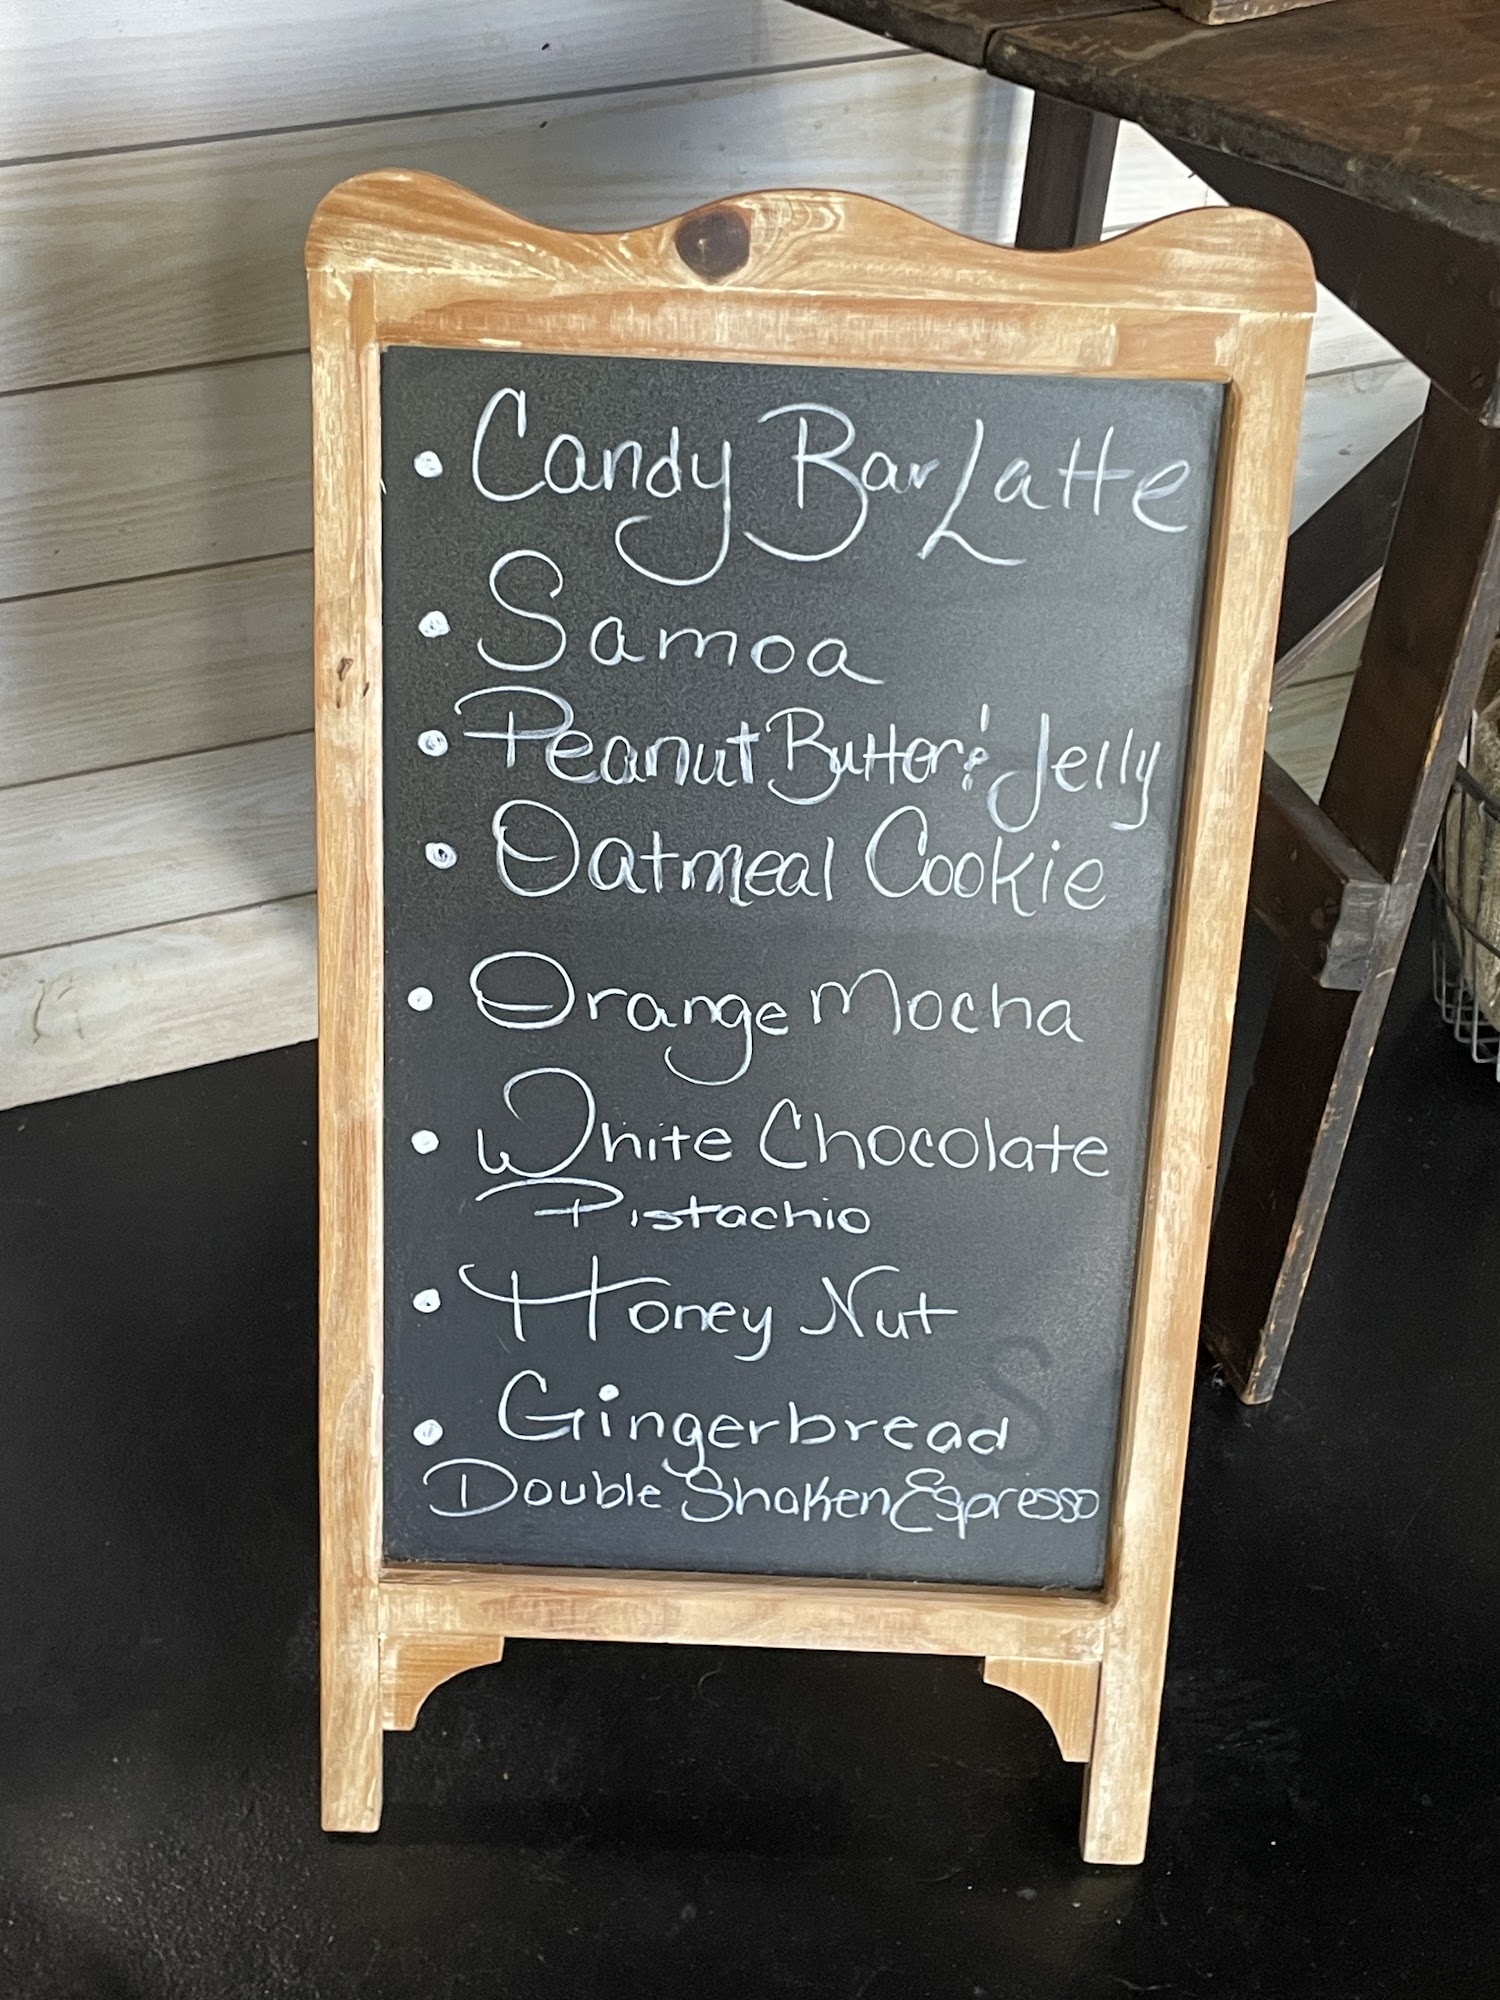 • Candy Bar Latte
• Samoa
• Peanut Butter & Jelly
• Oatmeal Cookie
• Orange Mocha
• White Chocolate
Pistachio
• Honey Nut
• Gingerbread
Double Shaken Espresso